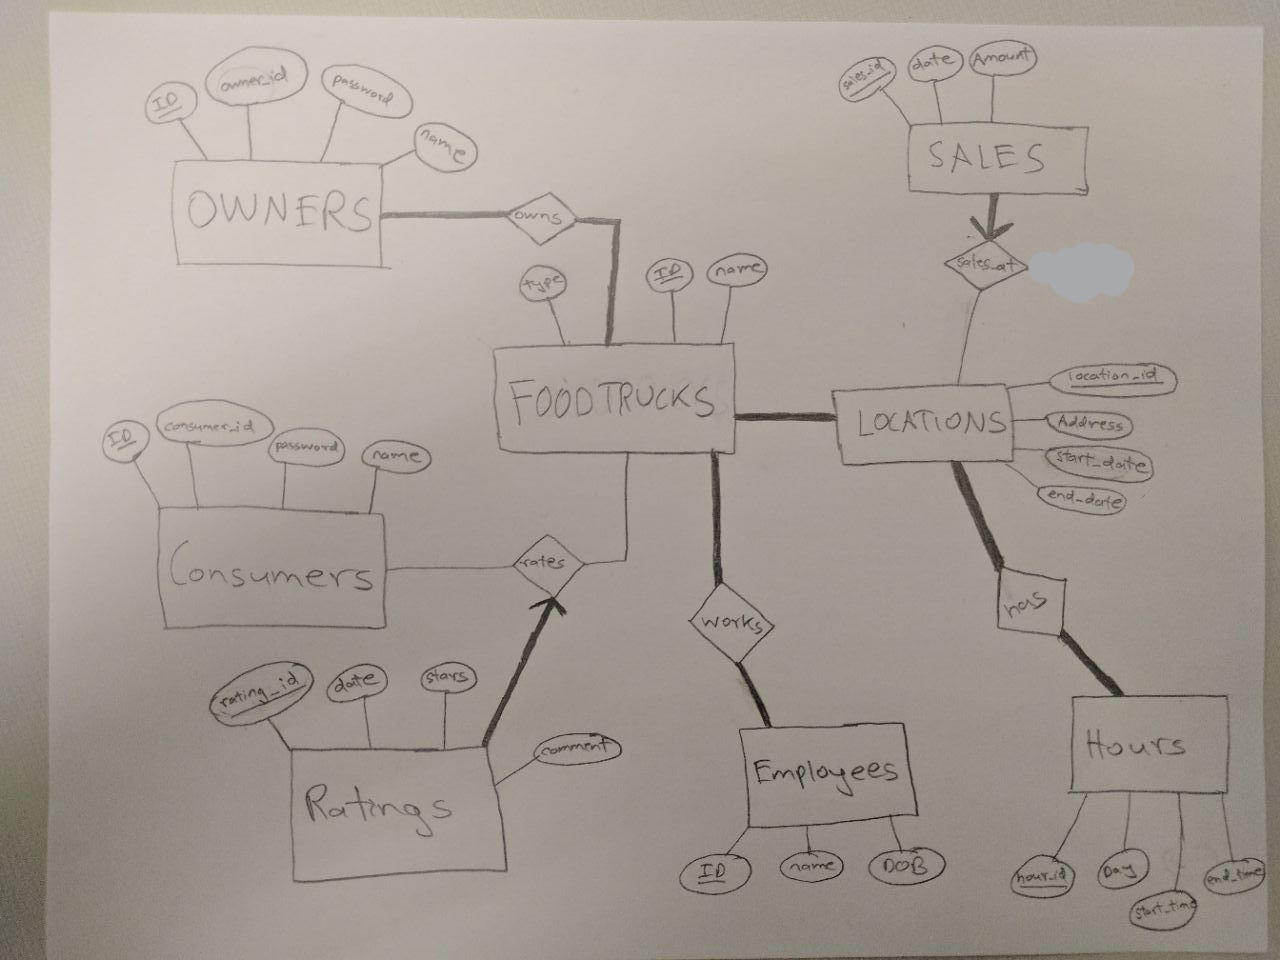 ID
owner_id
password
name
OWNERS
owns
sales_id
date
Amount
SALES
sales_at
type
ID
name
FOODTRUCKS
LOCATIONS
location_id
Address
start_date
end_date
ID
consumer_id
password
name
Consumers
rates
works
has
rating_id
date
stars
comment
Ratings
Employees
ID
name
DOB
Hours
hour_id
Day
start_time
end_time